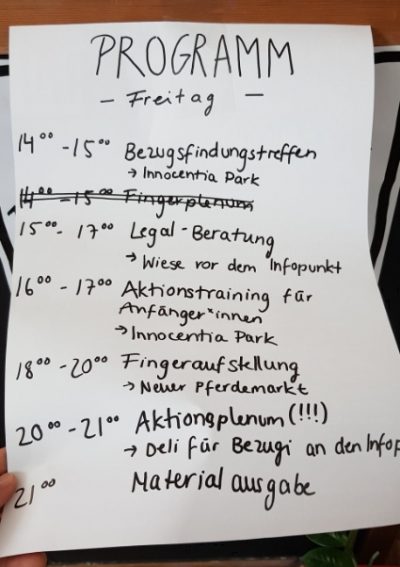 PROGRAMM
- Freitag -
14⁰⁰ - 15⁰⁰ Bezugsfindungstreffen
→ Innocentia Park
14⁰⁰ - 15⁰⁰ Fingerplenum
15⁰⁰ - 17⁰⁰ Legal-Beratung
→ Wiese vor dem Infopunkt
16⁰⁰ - 17⁰⁰ Aktionstraining für
Anfänger*innen
→ Innocentia Park
18⁰⁰ - 20⁰⁰ Fingeraufstellung
→ Neuer Pferdemarkt
20⁰⁰ - 21⁰⁰ Aktionsplenum (!!!)
→ Deli für Bezugi an den Infop
21⁰⁰ Materialausgabe